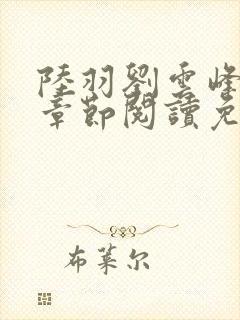 陸羽劉雲峰
章節閱讀免
布萊尔